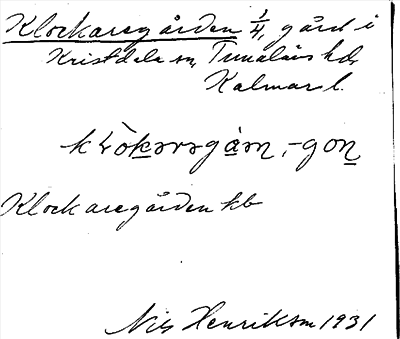 Klockaregården 1/4, gård i
Kristdala sn, Tunaläns hd,
Kalmar l.
Klockaregården kb
Nils Henriksson 1931